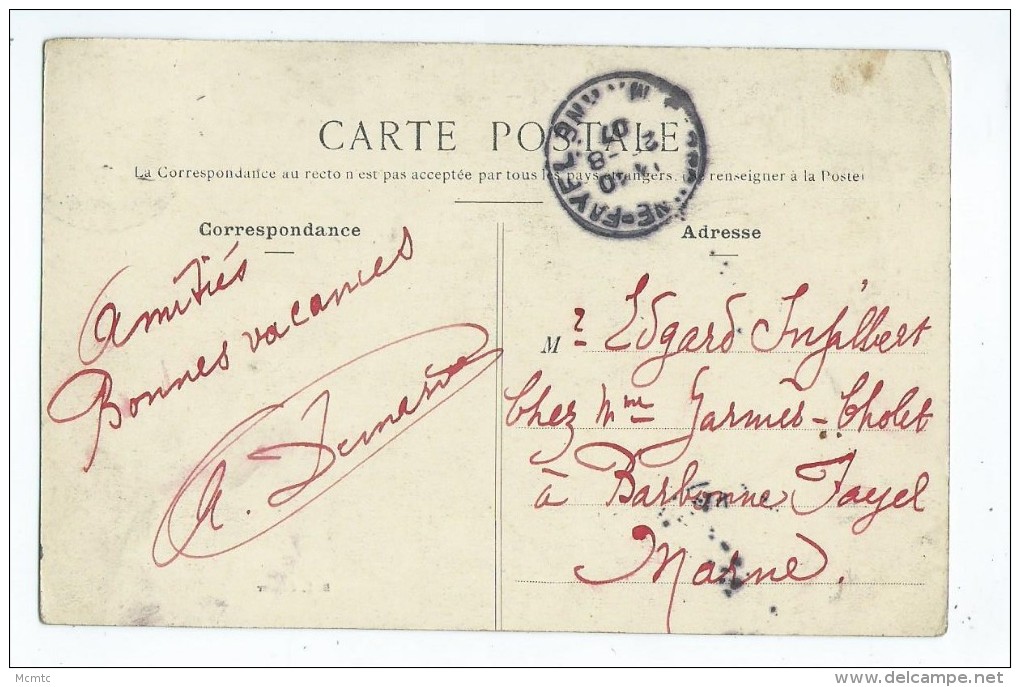 CARTE POSTALE
La Correspondance au recto n'est pas acceptée par tous les pays étrangers. (Se renseigner à la Poste)
Correspondance
Adresse
Amitiés
Bonnes vacances
A.
Mr Edgard
Chez Mme Garmès-Cholet
à Barbonne Fayel
Marne.
NE-FAYEL
10
8
2
07
Mcmtc
www.delcampe.net